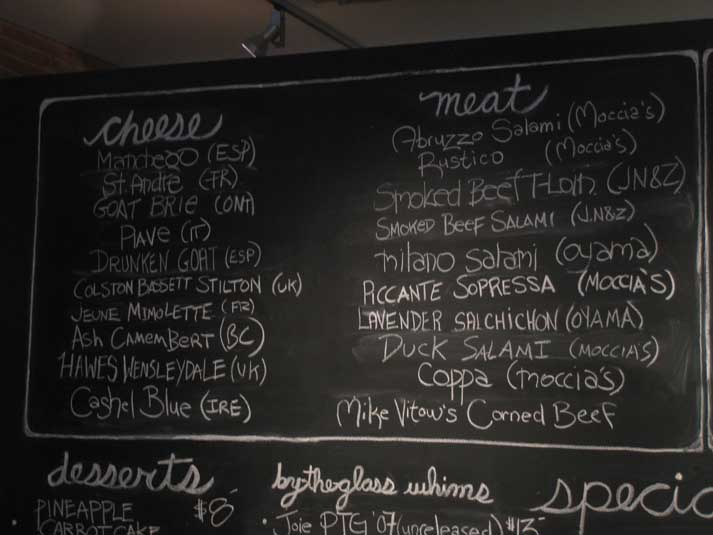 cheese
Manchego (ESP)
St. André (FR)
GOAT BRIE (ONT)
PIAVE (IT)
DRUNKEN GOAT (ESP)
COLSTON BASSETT STILTON (UK)
JEUNE MIMOLETTE (FR)
Ash CAMEMBERT (BC)
HAWES WENSLEYDALE (UK)
Cashel Blue (IRE)
meat
Abruzzo Salami (Moccia's)
Rustico (Moccia's)
Smoked Beef T-Loin (JN&Z)
SMOKED BEEF SALAMI (J.N&Z)
milano salami (oyama)
PICCANTE SOPRESSA (MOCCIA'S)
LAVENDER SALCHICHON (OYAMA)
DUCK SALAMI (MOCCIA'S)
Coppa (moccia's)
Mike Vitow's Corned Beef
desserts
PINEAPPLE
CARROT CAKE
$8
by the glass whims
• Joie PTG '07 (unreleased) $13-
specia